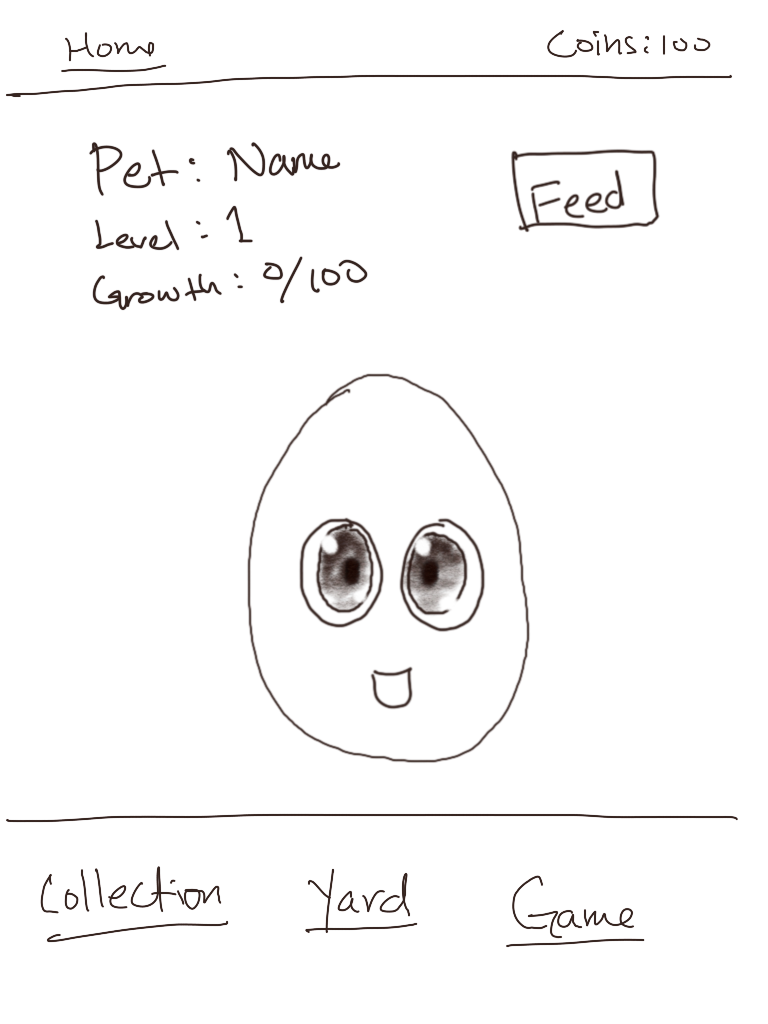 Home Coins: 100
Pet: Name
Feed
Level: 1
Growth: 0/100
Collection Yard Game